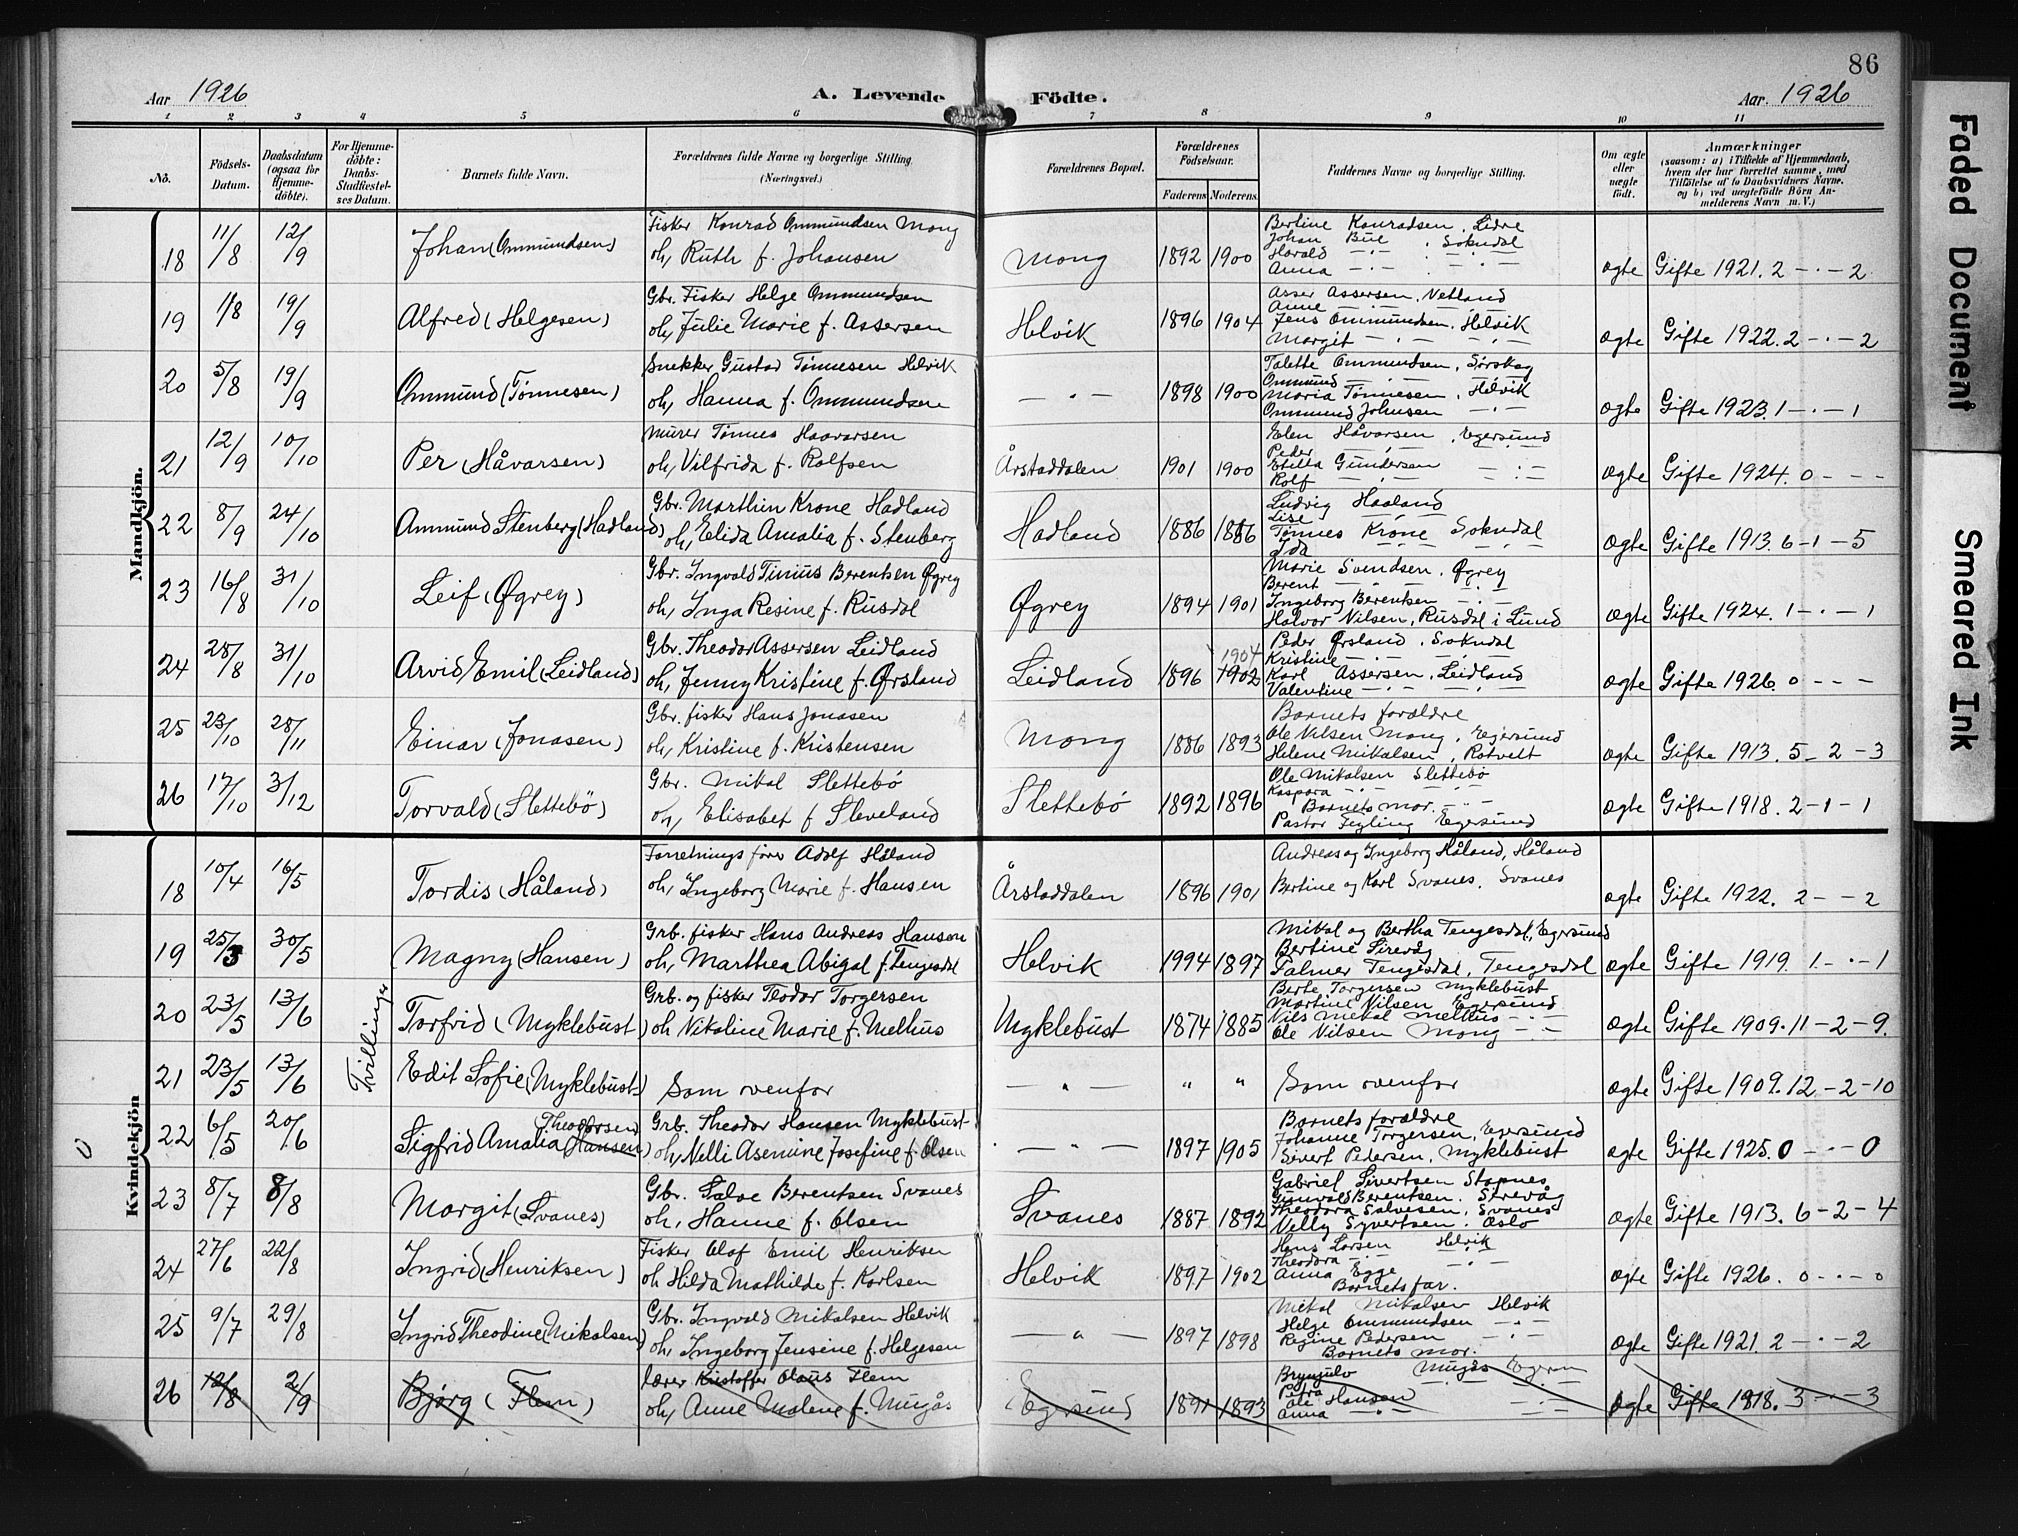 86
Aar 1926
A. Levende Födte.
Aar. 1926
1 2 3 4 5 6 7 8 9 10 11
No.
Födsels-Datum.
Daabsdatum (ogsaa for Hjemme-döbte).
For Hjemme-döbte: Daabs-Stadfæstel-ses Datum.
Barnets fulde Navn.
Forældrenes fulde Navne og borgerlige Stilling.
(Næringsvei.)
Forældrenes Bopæl.
Forældrenes Födselsaar.
Faderens Moderens
Faddernes Navne og borgerlige Stilling.
Om ægte eller uægte födt.
Anmærkninger
(saasom: a) i Tilfælde af Hjemmedaab,
hvem der har forrettet samme, med
Tilföielse af to Daabsvidners Navne,
og b) ved uægtefödte Börn An-
melderens Navn m. V.)
Mandkjön.
18 11/8 12/9 Johan (Ommundsen)
Fisker Konrad Ommundsen Mong
oh, Ruth f. Johansen
Mong 1892 1900
Bertine Konradsen, Lidre
Johan Bue . Sokndal
Harald — " — . — " —
Anna — " — . — " —
ægte Gifte 1921. 2 — . — 2
19 1/8 19/9 Alfred (Helgesen)
Gbr. Fisker Helge Ommundsen
oh, Julie Marie f. Assersen
Helvik 1896 1904
Asser Assersen, Vetland
Anne — " —
Jens Ommundsen, Helvik
Margit — " — — " —
ægte Gifte 1922. 2 — . — 2
20 5/8 19/9 Ommund (Tönnesen)
Snekker Gustav Tönnesen Helvik
oh, Hanna f. Ommundsen
— " — 1898 1900
Talette Ommundsen, Sörskog
Ommund — " —
Maria Tönnesen, Helvik
Ommund Johnsen — " —
ægte Gifte 1923. 1 — . — 1
21 12/9 10/10 Per (Håvarsen)
Murer Tönnes Haavarsen
oh, Vilfrida f. Rolfsen
Årstaddalen 1901 1900
Elen Håvarsen, Egersund
Peder — " —
Etilla Gundersen — " —
Rolf — " —
ægte Gifte 1924. 0 — — —
22 8/9 24/10 Ammund Stenberg (Hadland)
Gbr. Marthin Krone Hadland
oh, Elida Amalia f. Stenberg
Hadland 1886 1886
Ludvig Haaland
Lise — " —
Tönnes Krone Sokndal
Ida — " — — " —
ægte Gifte 1913. 6 — 1 — 5
23 16/8 31/10 Leif (Øgrey)
Gbr. Ingvald Tinius Berentsen Øgrey
oh, Inga Resine f. Rusdal
Øgrey 1894 1901
Marie Svendsen, Øgrey
Berent — " — — " —
Ingeborg Berentsen — " —
Halvor Nilsen, Rusdal i Lund
ægte Gifte 1924. 1 — . — 1
24 28/8 31/10 Arvid Emil (Leidland)
Gbr. Theodor Assersen Leidland
oh, Jenny Kristine f. Ørsland
Leidland 1896 1904 1902
Peder Ørsland, Sokndal
Kristine — " — — " —
Karl Assersen, Leidland
Valentine — " — — " —
ægte Gifte 1926. 0 — — —
25 23/10 28/11 Einar (Jonasen)
Gbr. fisker Hans Jonasen
oh, Kristine f. Kristensen
Mong 1886 1893
Barnets forældre
Ole Nilsen Mong, Egersund
Helene Mikalsen, Rötvelt
ægte Gifte 1913. 5 — 2 — 3
26 17/10 3/12 Torvald (Slettebö)
Gbr. Mikal Slettebö
oh, Elisabet f Sleveland
Slettebö 1892 1896
Ole Mikalsen Slettebö
Kaspara — " — — " —
Barnets mor. — " —
Pastor Tegling Egersund
ægte Gifte 1918. 2 — 1 — 1
Kvindekjön
18 10/4 16/5 Tordis (Håland)
Forretningsförer Adolf Håland
oh, Ingeborg Marie f. Hansen
Årstaddalen 1896 1901
Andreas og Ingeborg Håland, Håland
Bertine og Karl Svanes. Svanes
ægte Gifte 1922. 2 — — 2
19 25/3 30/5 Magny (Hansen)
Grb. fisker Hans Andreas Hansen
oh, Marthea Abigal f. Tengesdal
Helvik 1994 1897
Mikal og Bertha Tengesdal, Egersund
Bertine Sirevåg
Falmer Tengesdal, Tengesdal
ægte Gifte 1919. 1 — . — 1
Tvillinger
20 23/5 13/6 Torfrid (Myklebust)
Grb. og fisker Teodor Torgersen
oh Nikoline Marie f. Melhus
Myklebust 1874 1885
Berte Torgersen Myklebust
Martine Nilsen Egersund
Nils Mikal Melhus — " —
Ole Nilsen Mong — " —
ægte Gifte 1909. 11 — 2 — 9.
21 23/5 13/6 Edit Sofie (Myklebust)
Som ovenfor
— " — " "
Som ovenfor
ægte Gifte 1909. 12 — 2 — 10
0
22 6/5 20/6 Sigfrid Amalia (Hansen) Theodorsen
Grb. Theodor Hansen Myklebust
oh, Nelli Asemine Josefine f. Olsen
— " — 1897 1905
Barnets forældre
Johanne Torgersen, Egersund
Sivert Pedersen, Myklebust
ægte Gifte 1925. 0 — . — 0
23 8/7 8/8 Margit (Svanes)
Gbr. Salve Berentsen Svanes
oh, Hanne f. Olsen
Svanes 1887 1892
Gabriel Sivertsen Stapnes
Gunvald Berentsen. Sirevåg
Theodora Salvesen, Svanes
Nelly Syvertsen. Oslo
ægte Gifte 1913. 6 — 2 — 4
24 27/6 22/8 Ingrid (Henriksen)
Fisker Olaf Emil Henriksen
oh Hilda Mathilde f. Karlsen
Helvik 1897 1902
Hans Larsen Helvik
Theodora — " — — " —
Anna Egge — " —
Barnets far.
ægte Gifte 1926. 0 — . — 0
25 9/7 29/8 Ingrid Theodine (Mikalsen)
Gbr. Ingvald Mikalsen Helvik
oh, Ingeborg Jensine f. Helgesen
— " — 1897 1898
Mikal Mikalsen Helvik
Helge Ommundsen — " —
Regine Pedersen — " —
Barnets mor.
ægte Gifte 1921. 2 — . — 2
26 12/8 2/9 Bjørg (Flem)
Lærer Kristoffer Olaus Flem
oh, Anne Malene f. Mugås
Egersund 1891 1893
Brynjulv Mugås Egersn
Petra — " — — " —
Ole Hansen — " —
Anna — " — — " —
ægte Gifte 1918. 3 — . — 3
Faded Document
Smeared Ink